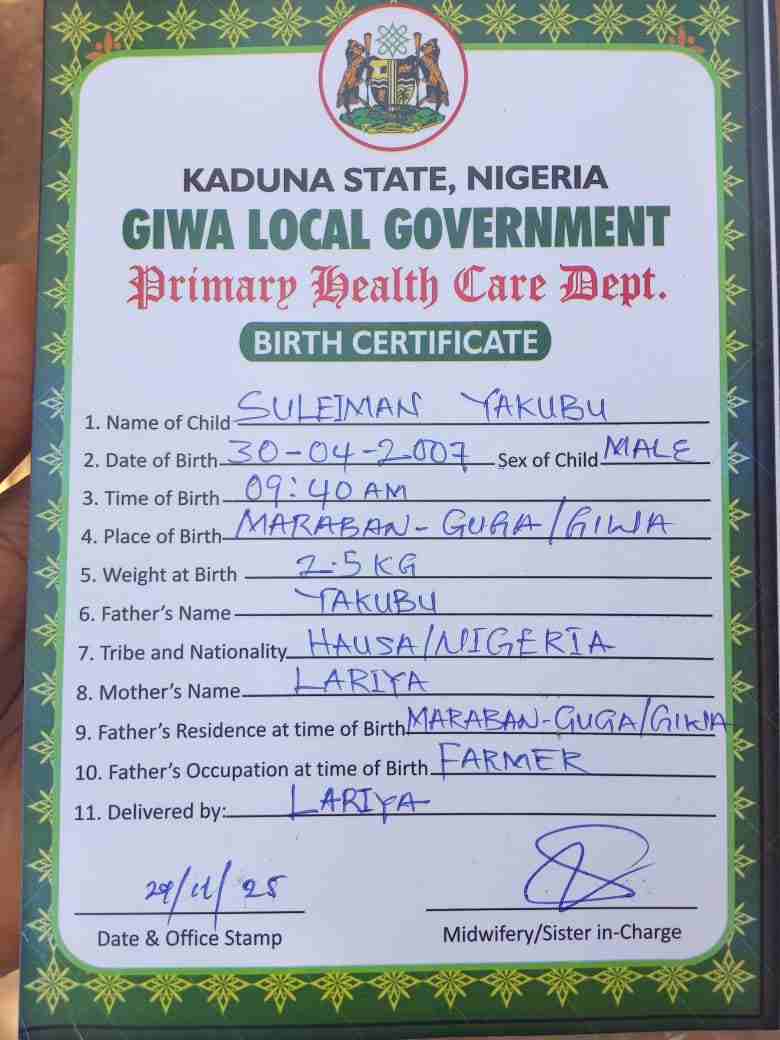 KADUNA STATE, NIGERIA
GIWA LOCAL GOVERNMENT
Primary Health Care Dept.
BIRTH CERTIFICATE
1. Name of Child SULEIMAN YAKUBU
2. Date of Birth 30-04-2007 Sex of Child MALE
3. Time of Birth 09:40 AM
4. Place of Birth MARABAN-GUGA/GIWA
5. Weight at Birth 2.5 KG
6. Father's Name YAKUBU
7. Tribe and Nationality HAUSA/NIGERIA
8. Mother's Name LARIYA
9. Father's Residence at time of Birth MARABAN-GUGA/GIWA
10. Father's Occupation at time of Birth FARMER
11. Delivered by: LARIYA
Date & Office Stamp Midwifery/Sister in-Charge